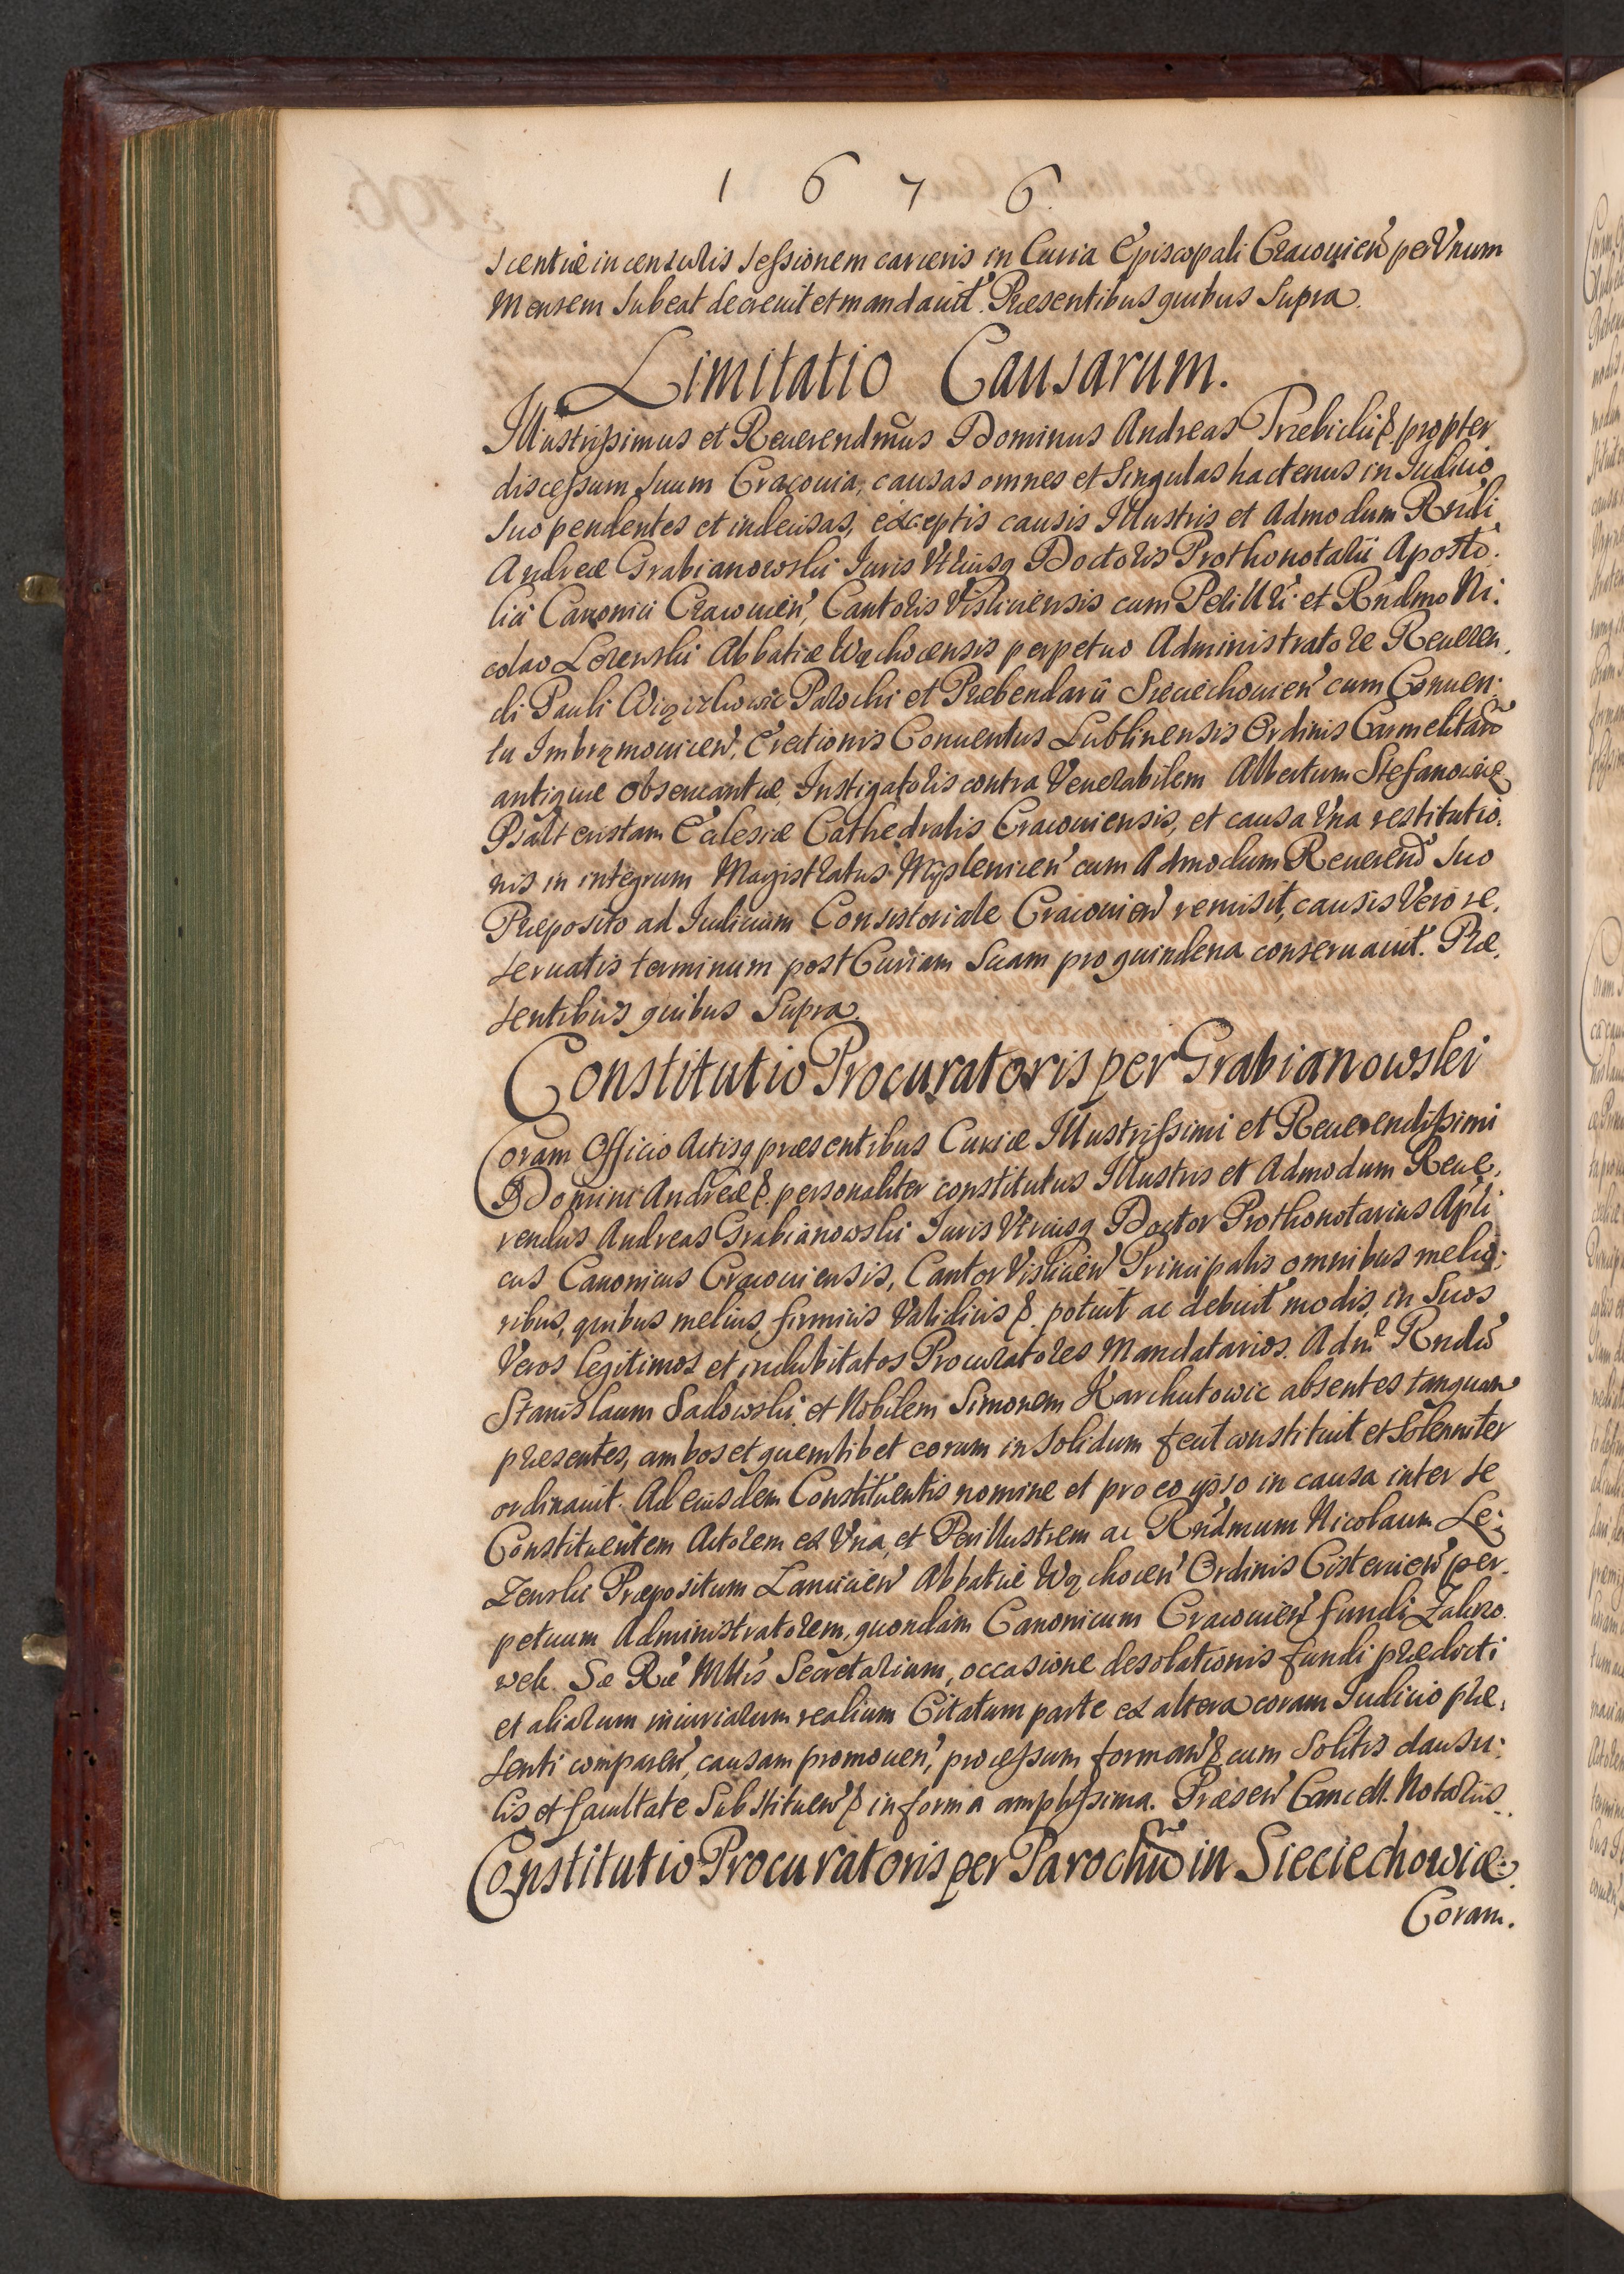 1 6 7 6.
scentiæ in censuris sessionem carceris in Curia Episcopali Cracouien̄ per Vnum
Mensem Subeat decreuit et mandauit. Præsentibus quibus Supra.
Limitatio Causarum.
Illustrissimus et Reuerendm̄us Dominus Andreas Trzebicki &. propter
discessum suum Cracouia, causas omnes et singulas hactenus in Iudicio
suo pendentes et indecisas, exceptis causis Illustris et Admodum Rndi
Andreæ Grabianowski Iuris Vtriusq Doctoris Prothonotarii Aposto:
lici Canonici Cracouien̄, Cantoris Visliciensis cum Perillri et Rndmo Ni:
colao Lezenski Abbatiæ Wąchocensis perpetuo Administratore Reueren:
di Pauli Parochi et Præbendarii Sieciechouien̄ cum Conuen:
tu Imbramouicen̄, Erectionis Conuentus Lublinensis Ordinis Carmelitar̄
antiquæ obseruantiæ, Instigatoris contra Venerabilem Albertum Stefanowicz
Psalteristam Ecclesiæ Cathedralis Cracouiensis, et causa Vna restitutio:
nis in integrum Magistratus Myslenicen̄ cum Admodum Reuerend̄ Suo
Præposito ad Iudicium Consistoriale Cracouien̄ remisit, causis Vero re:
seruatis terminum post Curiam Suam pro quindena conseruauit. Præ:
sentibus quibus Supra.
Constitutio Procuratoris per Grabianowski
Coram Officio Actisq præsentibus Curiæ Illustrissimi et Reuerendissimi
Domini Andreæ &. personaliter constitutus Illustris et Admodum Reue:
rendus Andreas Grabianowski Iuris Vtriusq Doctor Prothonotarius Apli
cus Canonicus Cracouiensis, Cantor Vislicien̄ Principalis omnibus melio:
ribus, quibus melius firmius Validius &. potuit ac debuit modis, in Suos
Veros legitimos et indubitatos Procuratores Mandatarios. Adm̄ Rndū
Stanislaum Sadowski, et Nobilem Simonem Karchutowic absentes tanquam
præsentes, ambos et quemlibet eorum in solidum fecit constituit et Solenniter
ordinauit. Ad eiusdem Constituentis nomine et pro eo ipso in causa inter se
Constituentem Actorem ex Vna, et Perillustrem ac Rndmum Nicolaum Le:
zenski Præpositum Lancicien̄ Abbatiæ Wąchocen̄ Ordinis Cistercien̄ per:
petuum Administratorem, quondam Canonicum Cracouien̄ fundi
Sæ Ræ Mttis Secretarium, occasione desolationis fundi prædicti
et aliarum iniuriarum realium Citatum parte ex altera coram Iudicio præ:
senti comparen̄, causam promouen̄, processum forman̄ & cum Solitis clausu:
lis et facultate Substituen̄ & in forma amplissima. Præsen̄ Cancell. Notariis.
Constitutio Procuratoris per Parochū in Sieciechowice.
Coram.